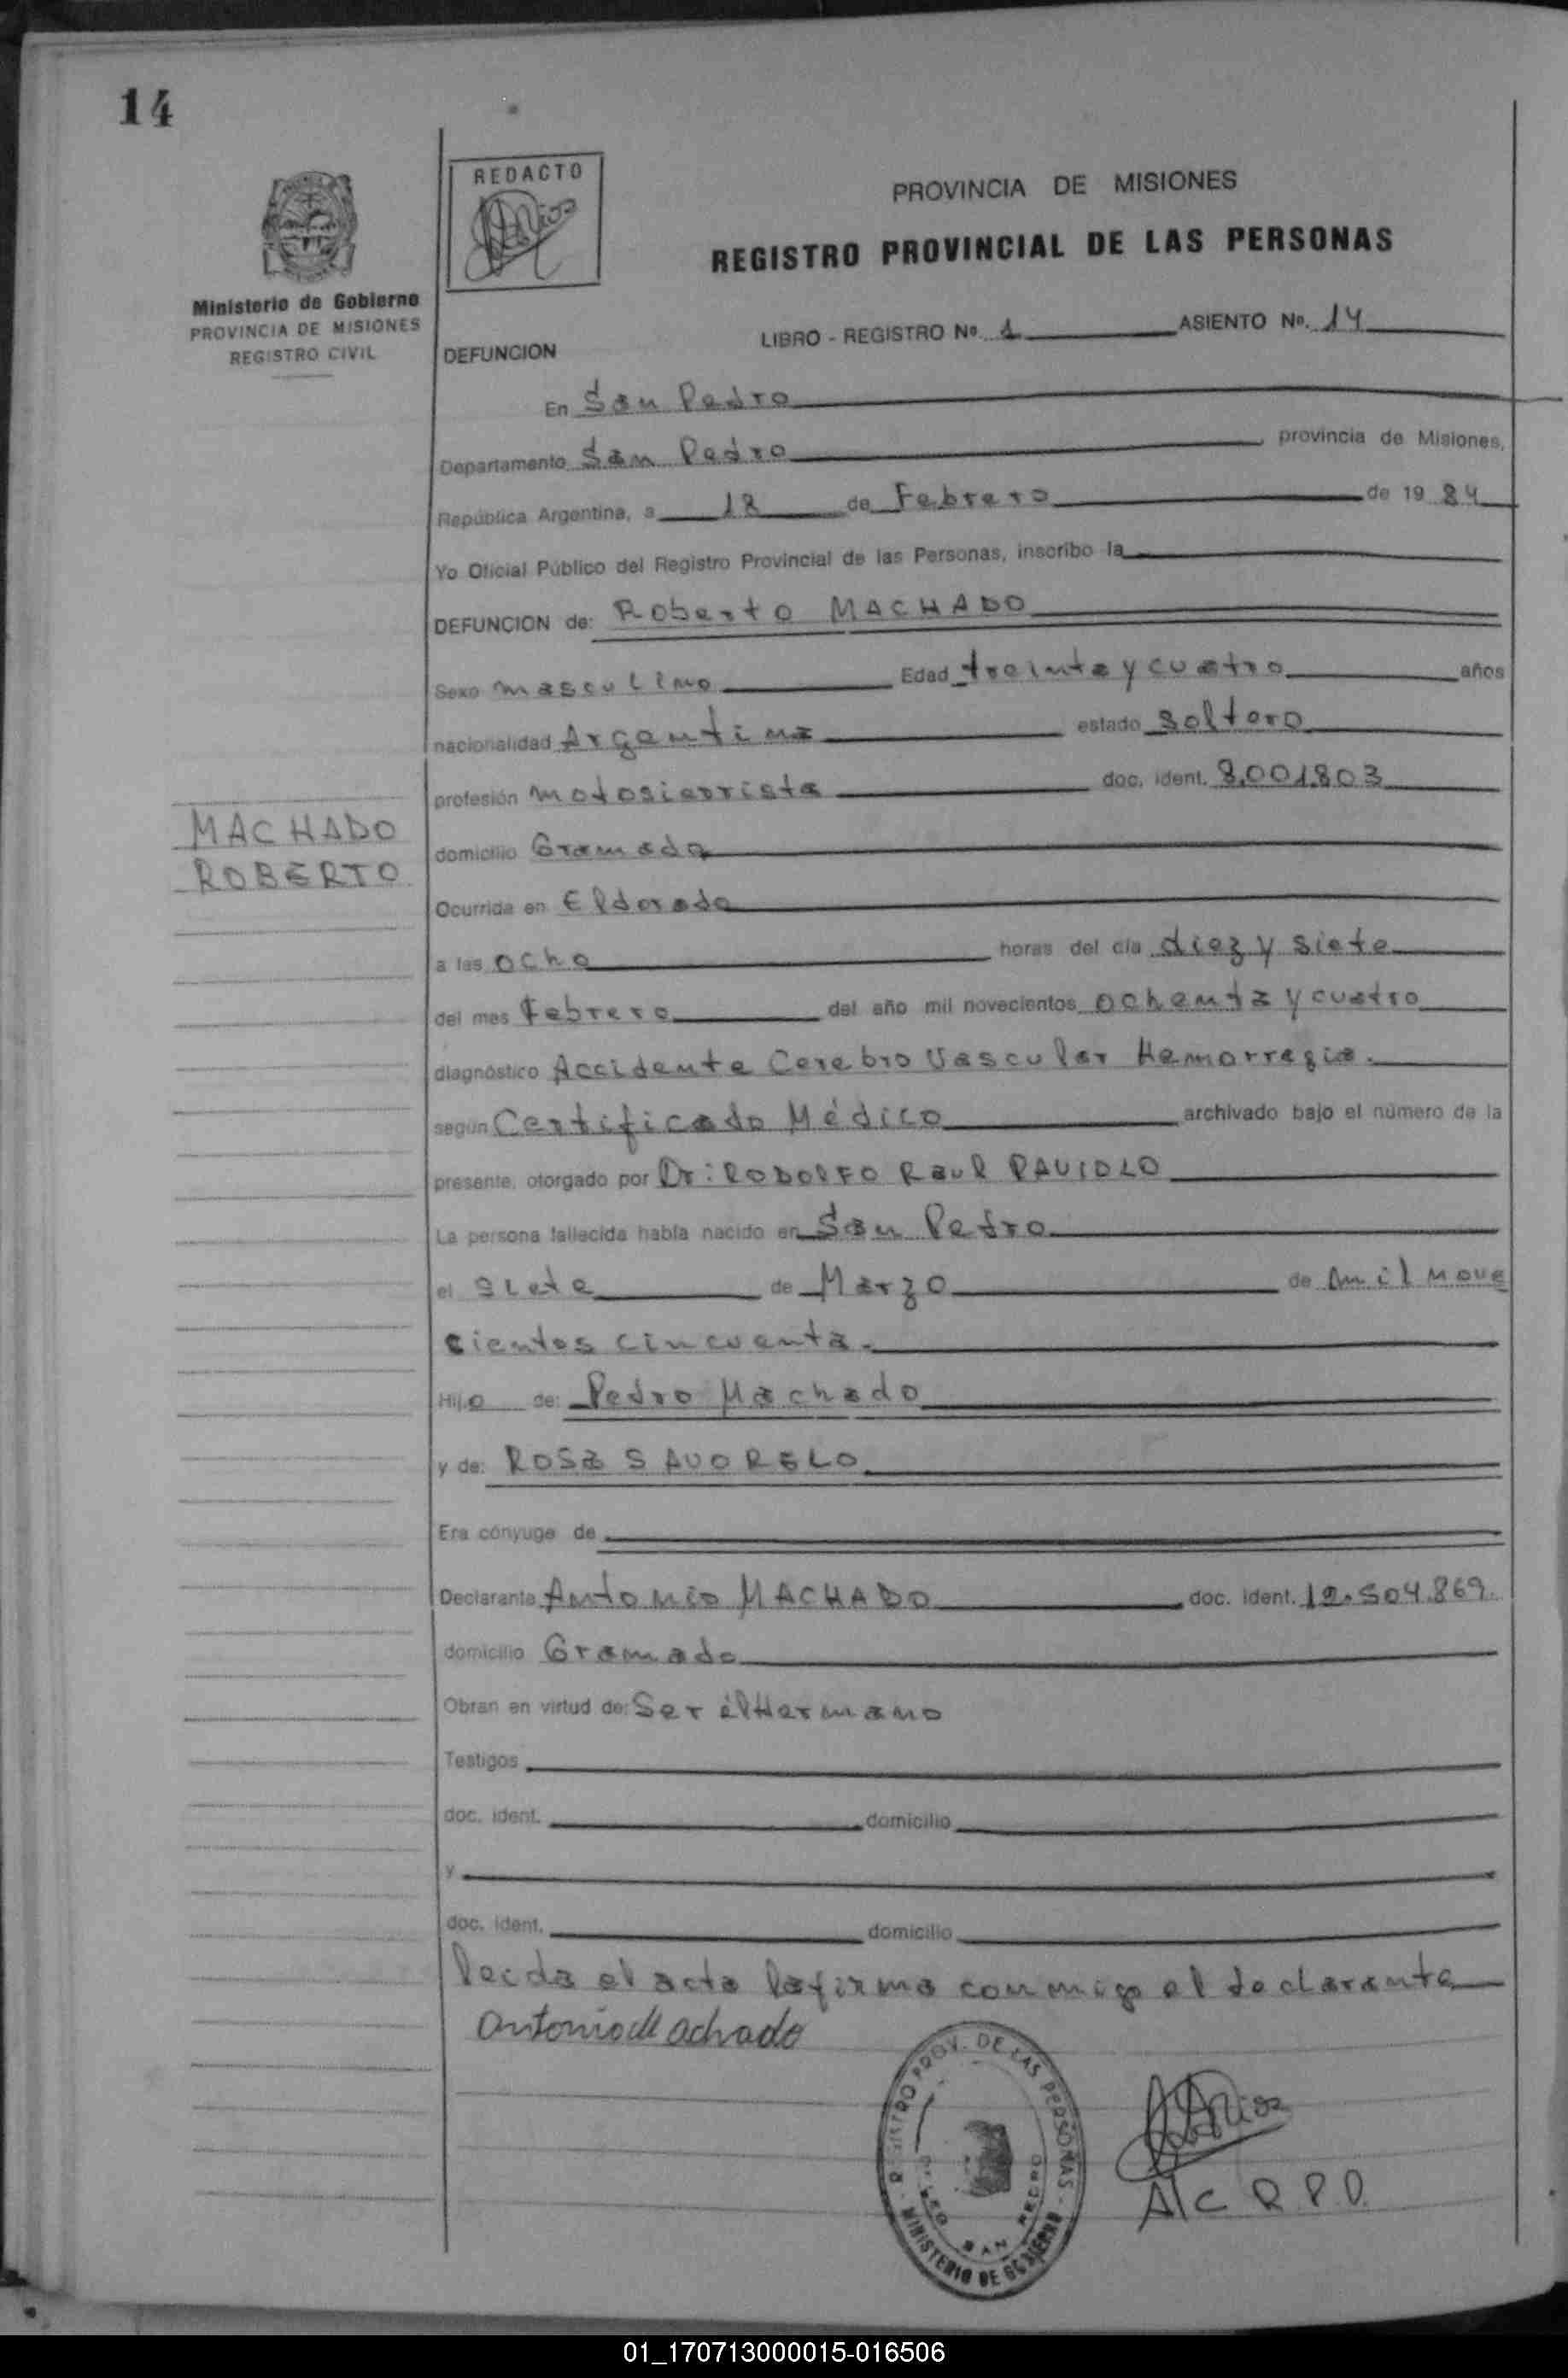 14
REDACTO
PROVINCIA DE MISIONES
REGISTRO PROVINCIAL DE LAS PERSONAS
Ministerio de Gobierno
PROVINCIA DE MISIONES
REGISTRO CIVIL
LIBRO - REGISTRO Nº 1 ASIENTO Nº. 14
DEFUNCION
En San Pedro
Departamento San Pedro provincia de Misiones,
República Argentina, a 18 de Febrero de 19 84
Yo Oficial Público del Registro Provincial de las Personas, inscribo la
DEFUNCION de: Roberto MACHADO
Sexo masculino Edad treinta y cuatro años
nacionalidad Argentina estado soltero
profesión motosierrista doc. ident. 8.001.803
MACHADO
ROBERTO
domicilio Gramado
Ocurrida en Eldorado
a las ocho horas del día diez y siete
del mes Febrero del año mil novecientos ochenta y cuatro
diagnóstico Accidente Cerebro Vascular Hemorregia.
según Certificado Médico archivado bajo el número de la
presente, otorgado por Dr: RODOLFO Raul PAVIOLO
La persona fallecida había nacido en San Pedro
el siete de Marzo de mil nove
cientos cincuenta.
Hijo de: Pedro Machado
y de: ROSA SAVORELO
Era cónyuge de
Declarante Antonio MACHADO doc. ident. 12.504.869.
domicilio Gramado
Obran en virtud de: Ser él Hermano
Testigos
doc. ident. domicilio
y
doc. ident. domicilio
leida el acta la firma conmigo el declarante
Antonio Machado
REGISTRO PROV. DE LAS PERSONAS
SAN PEDRO
MINISTERIO DE GOBIERNO
A/C R.P.D.
01_170713000015-016506